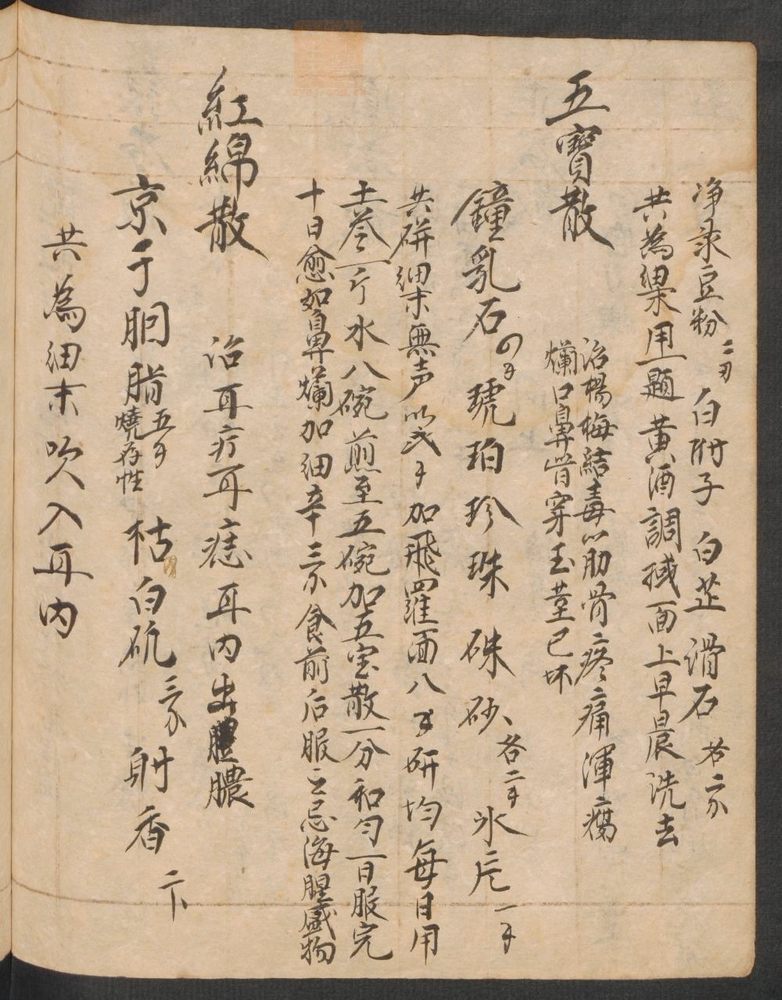 净彔豆粉 二刃 白附子 白芷 滑石 各二分
共為細末用一題黄酒調搽面上早晨洗去
五寶散
治楊梅結毒以筋骨疼痛渾瘍
爛口鼻皆穿玉莖已坏
鐘乳石 琥珀 珍珠 硃砂 各二 氷片 一
共研細末無声 加飛羅面八 研均每日用
土苓一斤水八碗煎至五碗加五宝散一分和匀一日服完
十日愈如鼻爛加細辛三分食前后服之忌海腥盛物
紅綿散
治耳疔耳痣耳内出膿
京子胭脂 五 燒存性 枯白矾 三分 射香 二卜
共為细末吹入耳内